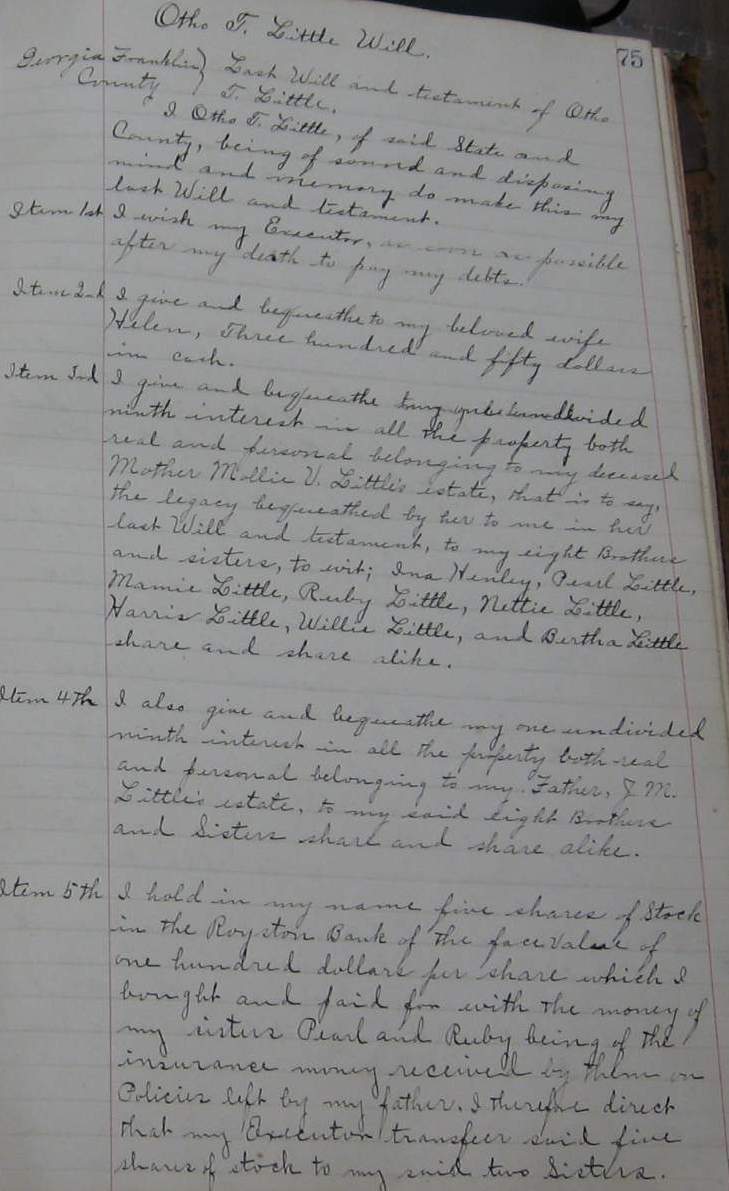 Otho T. Little Will.
75
Georgia Franklin } Last Will and testament of Otho
County } T. Little.
I Otho T. Little, of said State and
County, being of sound and disposing
mind and memory do make this my
last Will and testament.
Item 1st I wish my Executor, as soon as possible
after my death to pay my debts.
Item 2nd I give and bequeathe to my beloved wife
Helen, Three hundred and fifty dollars
in cash.
Item 3rd I give and bequeathe my undivided
ninth interest in all the property both
real and personal belonging to my deceased
Mother Mollie V. Little's estate, that is to say,
the legacy bequeathed by her to me in her
last Will and testament, to my eight Brothers
and sisters, to wit; Ina Henley, Pearl Little,
Mamie Little, Ruby Little, Nettie Little,
Harris Little, Willie Little, and Bertha Little
share and share alike.
Item 4th I also give and bequeathe my one undivided
ninth interest in all the property both real
and personal belonging to my Father, J. M.
Little's estate, to my said eight Brothers
and Sisters share and share alike.
Item 5th I hold in my name five shares of Stock
in the Royston Bank of the face Value of
one hundred dollars per share which I
bought and paid for with the money of
my sisters Pearl and Ruby being of the
insurance money received by them on
Policies left by my father. I therefore direct
that my Executor transfer said five
shares of stock to my said two Sisters.